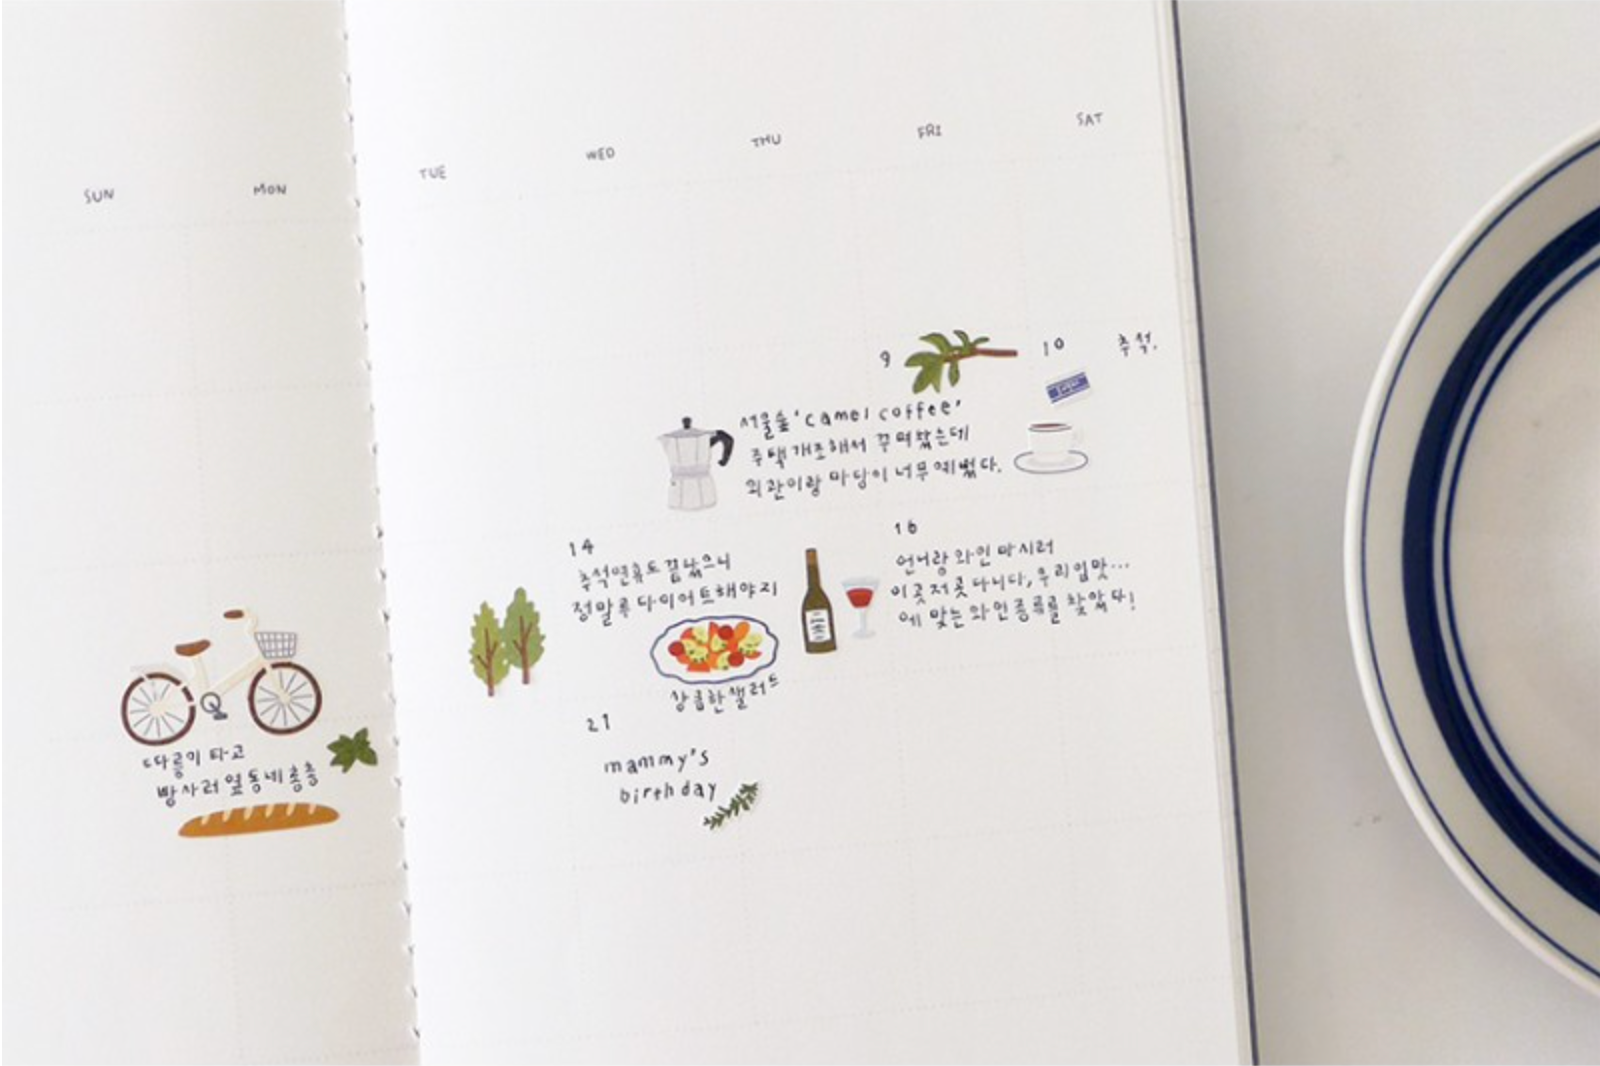 SUN
MON
TUE
WED
THU
FRI
SAT
9
10
추석.
서울숲 'camel coffee'
주택개조해서 꾸며놨는데
외관이랑 마당이 너무 예뻤다.
14
추석연휴도 끝났으니
정말로 다이어트해야지
상큼한 샐러드
16
언니랑 와인 마시러
이곳저곳 다니다, 우리 입맛...
에 맞는 와인종류를 찾았다!
따릉이 타고
빵사러 옆동네 총총
21
mammy's
birthday